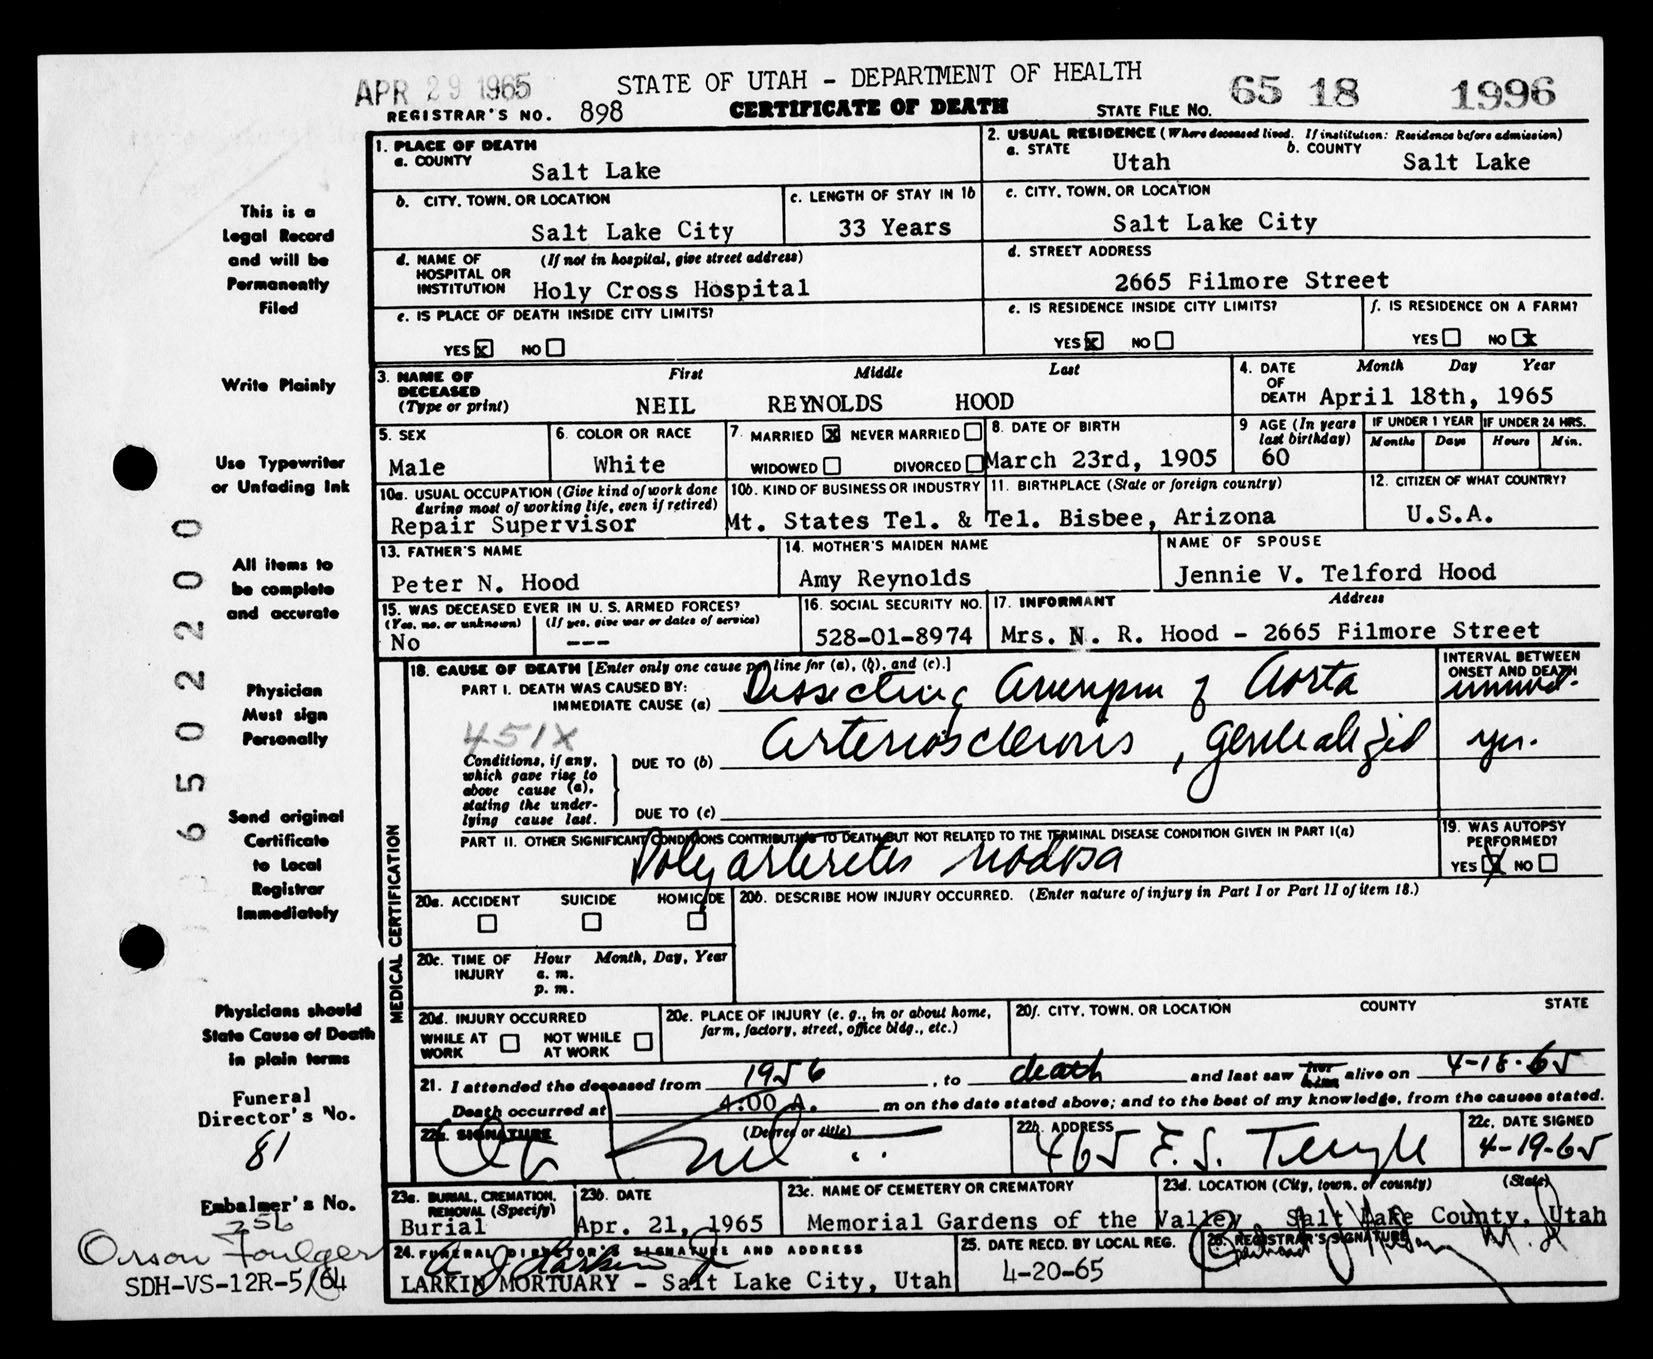 APR 29 1965
STATE OF UTAH - DEPARTMENT OF HEALTH
65 18 1996
REGISTRAR'S NO. 898
CERTIFICATE OF DEATH
STATE FILE NO.
This is a
Legal Record
and will be
Permanently
Filed
Write Plainly
Use Typewriter
or Unfading Ink
All items to
be complete
and accurate
Physician
Must sign
Personally
Send original
Certificate
to Local
Registrar
Immediately
Physicians should
State Cause of Death
in plain terms
Funeral
Director's No.
81
Embalmer's No.
256
Orson Foulger
SDH-VS-12R-5/64
65022200
1. PLACE OF DEATH
a. COUNTY
Salt Lake
2. USUAL RESIDENCE (Where deceased lived. If institution: Residence before admission)
a. STATE Utah b. COUNTY Salt Lake
b. CITY, TOWN, OR LOCATION
Salt Lake City
c. LENGTH OF STAY IN 1b
33 Years
c. CITY, TOWN, OR LOCATION
Salt Lake City
d. NAME OF HOSPITAL OR INSTITUTION (If not in hospital, give street address)
Holy Cross Hospital
d. STREET ADDRESS
2665 Filmore Street
e. IS PLACE OF DEATH INSIDE CITY LIMITS?
YES x NO
e. IS RESIDENCE INSIDE CITY LIMITS?
YES x NO
f. IS RESIDENCE ON A FARM?
YES NO x
3. NAME OF DECEASED (Type or print)
First Middle Last
NEIL REYNOLDS HOOD
4. DATE OF DEATH Month Day Year
April 18th, 1965
5. SEX
Male
6. COLOR OR RACE
White
7. MARRIED x NEVER MARRIED
WIDOWED DIVORCED
8. DATE OF BIRTH
March 23rd, 1905
9 AGE (In years last birthday)
60
IF UNDER 1 YEAR IF UNDER 24 HRS.
Months Days Hours Min.
10a. USUAL OCCUPATION (Give kind of work done during most of working life, even if retired)
Repair Supervisor
10b. KIND OF BUSINESS OR INDUSTRY
Mt. States Tel. & Tel.
11. BIRTHPLACE (State or foreign country)
Bisbee, Arizona
12. CITIZEN OF WHAT COUNTRY?
U.S.A.
13. FATHER'S NAME
Peter N. Hood
14. MOTHER'S MAIDEN NAME
Amy Reynolds
NAME OF SPOUSE
Jennie V. Telford Hood
15. WAS DECEASED EVER IN U.S. ARMED FORCES?
(Yes, no, or unknown) (If yes, give war or dates of service)
No ---
16. SOCIAL SECURITY NO.
528-01-8974
17. INFORMANT Address
Mrs. N. R. Hood - 2665 Filmore Street
MEDICAL CERTIFICATION
18. CAUSE OF DEATH [Enter only one cause per line for (a), (b), and (c).]
INTERVAL BETWEEN ONSET AND DEATH
PART I. DEATH WAS CAUSED BY:
IMMEDIATE CAUSE (a) Dissecting Aneurysm of Aorta
451X
Conditions, if any, which gave rise to above cause (a), stating the underlying cause last.
DUE TO (b) Arteriosclerosis, generalized yrs.
DUE TO (c)
PART II. OTHER SIGNIFICANT CONDITIONS CONTRIBUTING TO DEATH BUT NOT RELATED TO THE TERMINAL DISEASE CONDITION GIVEN IN PART I(a)
Polyarteritis nodosa
19. WAS AUTOPSY PERFORMED?
YES x NO
20a. ACCIDENT SUICIDE HOMICIDE
20b. DESCRIBE HOW INJURY OCCURRED. (Enter nature of injury in Part I or Part II of item 18.)
20c. TIME OF INJURY Hour Month, Day, Year
a. m.
p. m.
20d. INJURY OCCURRED
WHILE AT WORK NOT WHILE AT WORK
20e. PLACE OF INJURY (e. g., in or about home, farm, factory, street, office bldg., etc.)
20f. CITY, TOWN, OR LOCATION COUNTY STATE
21. I attended the deceased from 1956, to death and last saw her him alive on 4-18-65
Death occurred at 4:00 A. m on the date stated above; and to the best of my knowledge, from the causes stated.
22a. SIGNATURE (Degree or title)
22b. ADDRESS
465 E. S. Temple
22c. DATE SIGNED
4-19-65
23a. BURIAL, CREMATION, REMOVAL (Specify)
Burial
23b. DATE
Apr. 21, 1965
23c. NAME OF CEMETERY OR CREMATORY
Memorial Gardens of the Valley
23d. LOCATION (City, town, or county) (State)
Salt Lake County, Utah
24. FUNERAL DIRECTOR'S SIGNATURE AND ADDRESS
LARKIN MORTUARY - Salt Lake City, Utah
25. DATE RECD. BY LOCAL REG.
4-20-65
26. REGISTRAR'S SIGNATURE